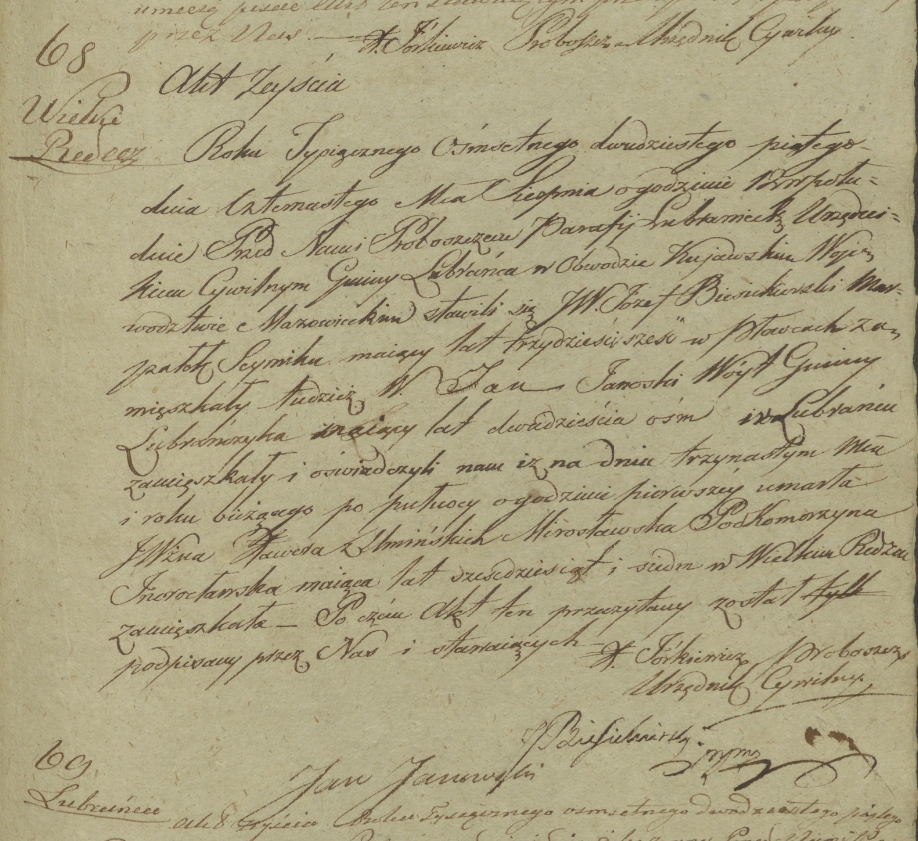 przez Nas. X. Jórkiewicz Proboszcz Urzędnik Cywilny
68
Akt Zeyścia
Wielki
Redecz
Roku Tysiącznego Ośmsetnego dwudziestego piątego
dnia Czternastego Mca Sierpnia o godzinie
dnie Przed Nami Proboszczem Parafij Lubranieckiej Urzędni=
kiem Cywilnym Gminy Lubrańca w Obwodzie Kujawskim Woje
wodztwie Mazowieckim stawili się JW. Jozef Biesiekierski Mar=
szałek Seymiku maiący lat trzydzieści sześć w Pławcach za
mięszkały tudzież W. Jan Janoski Woyt Gminy
Lubrańczyka maiący lat dwadzieścia ośm i w Lubrańcu
zamięszkały i oświadczyli nam iż na dniu trzynastym Mca
i roku bieżącego po pułnocy o godzinie pierwszéy umarła
JWżna Xawera z Umińskich Mirosławska Podkomorzyna
Inowrocławska maiąca lat sześdziesiąt i siedm w Wielkim Redczu
zamięszkała – Po czém Akt ten przeczytany został
podpisany przez Nas i stawaiących
X. Jórkiewicz Proboszcz
Urzędnik Cywilny
J Biesiekierski
Jan Janowski
69
Lubrańcu
Akt zeyścia Roku Tysiącznego osmsetnego dwudziestego piątego